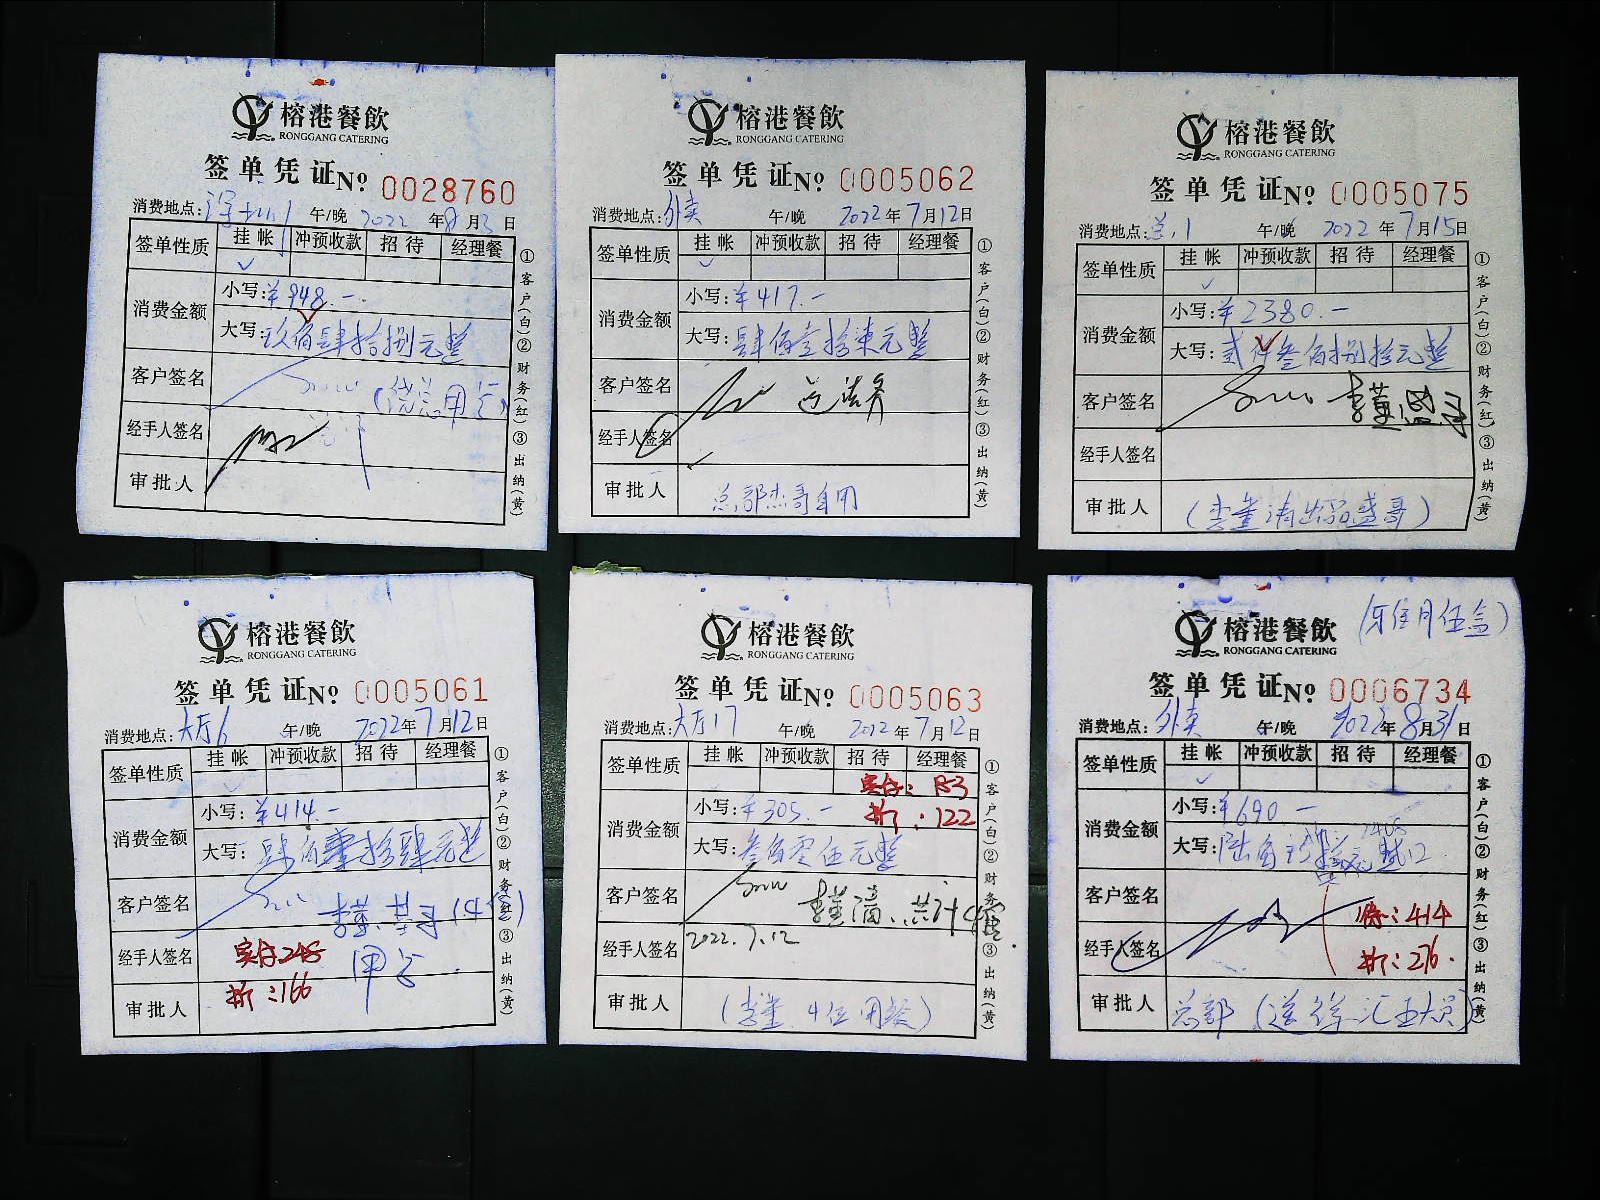 榕港餐飲
RONGGANG CATERING
签单凭证 No: 0028760
消费地点: 午/晚 2022年8月3日
签单性质 挂帐 冲预收款 招待 经理餐
消费金额
小写:¥948.-
大写:玖佰肆拾捌元整
客户签名
经手人签名
审批人
①客户(白)②财务(红)③出纳(黄)
榕港餐飲
RONGGANG CATERING
签单凭证 No: 0005062
消费地点:外卖 午/晚 2022年7月12日
签单性质 挂帐 冲预收款 招待 经理餐
消费金额
小写:¥417.-
大写:肆佰壹拾柒元整
客户签名
经手人签名
审批人 总部杰哥自用
①客户(白)②财务(红)③出纳(黄)
榕港餐飲
RONGGANG CATERING
签单凭证 No: 0005075
消费地点: 午/晚 2022年7月15日
签单性质 挂帐 冲预收款 招待 经理餐
消费金额
小写:¥2380-
大写:贰仟叁佰捌拾元整
客户签名
经手人签名
审批人 (李董请出品盛哥)
①客户(白)②财务(红)③出纳(黄)
榕港餐飲
RONGGANG CATERING
签单凭证 No: 0005061
消费地点:大厅6 午/晚 2022年7月12日
签单性质 挂帐 冲预收款 招待 经理餐
消费金额
小写:¥414.-
大写:肆佰壹拾肆元整
客户签名 李董
经手人签名
审批人 折:166
①客户(白)②财务(红)③出纳(黄)
榕港餐飲
RONGGANG CATERING
签单凭证 No: 0005063
消费地点:大厅17 午/晚 2022年7月12日
签单性质 挂帐 冲预收款 招待 经理餐
实付:183
消费金额
小写:¥305.- 折:122
大写:叁佰零伍元整
客户签名 李董
经手人签名 2022.7.12
审批人 (李董 4位用餐)
①客户(白)②财务(红)③出纳(黄)
榕港餐飲
RONGGANG CATERING
签单凭证 No: 0006734
消费地点:外卖 午/晚 2022年8月31日
签单性质 挂帐 冲预收款 招待 经理餐
消费金额
小写:¥690-
大写:陆佰玖拾元整
客户签名 414
经手人签名 折:276.
审批人 总部
①客户(白)②财务(红)③出纳(黄)